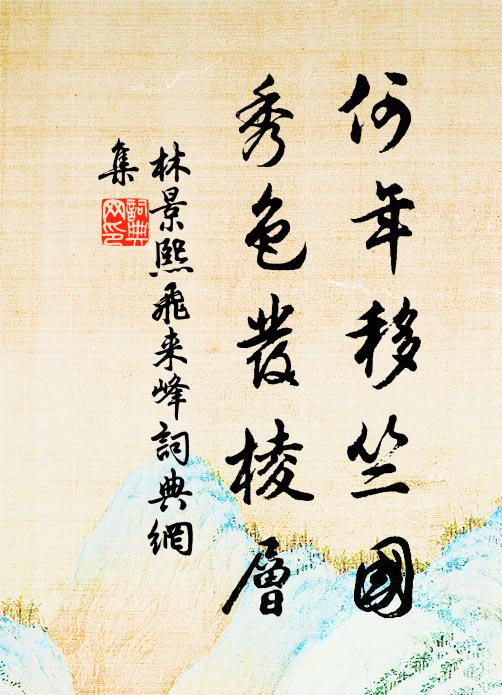 何年移竺國
秀色發棱層
林景熙飛来峰詞典網
集
詞典網印